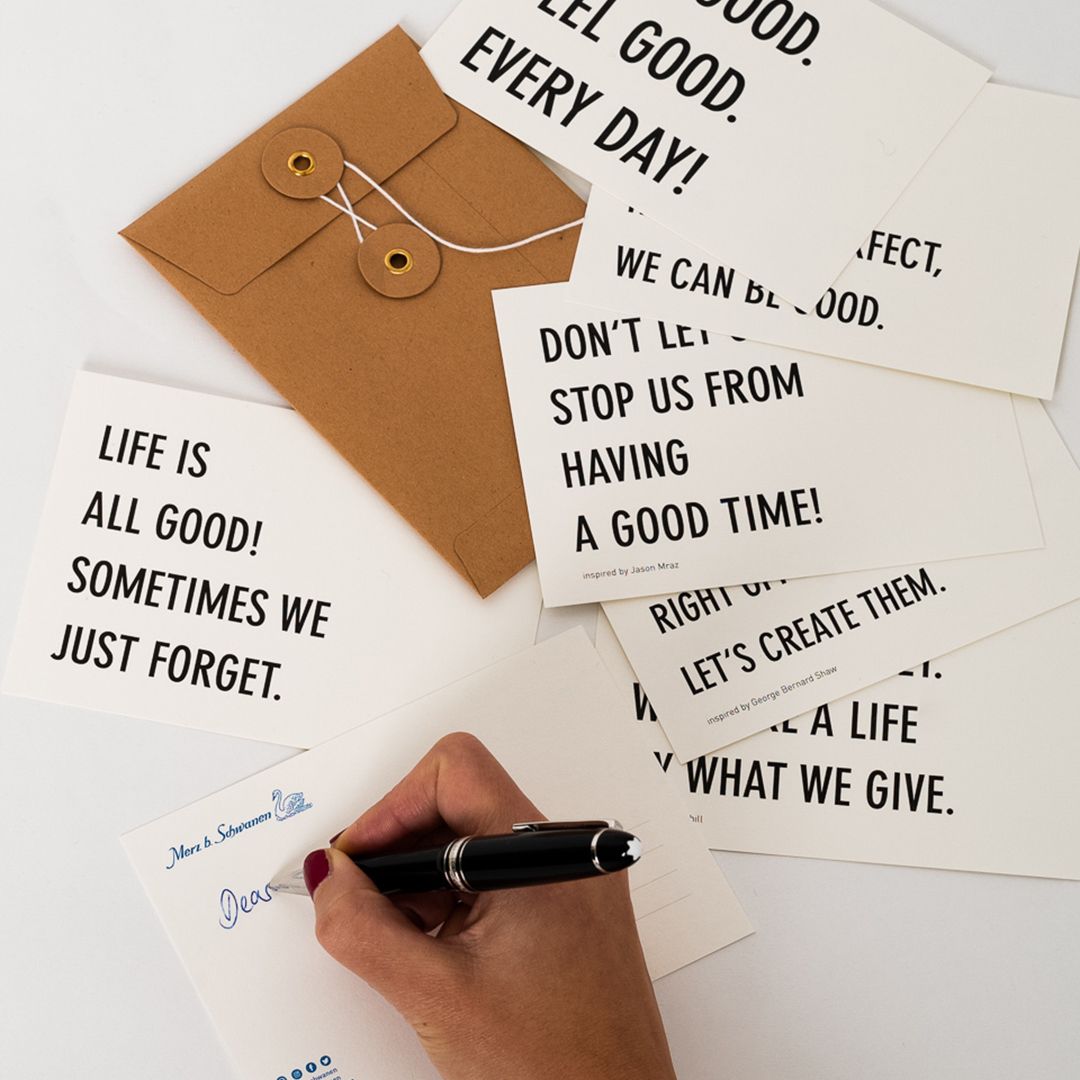 GOOD.
FEEL GOOD.
EVERY DAY!
WE CAN BE GOOD.
DON'T LET
STOP US FROM
HAVING
A GOOD TIME!
inspired by Jason Mraz
LIFE IS
ALL GOOD!
SOMETIMES WE
JUST FORGET.
RIGHT
LET'S CREATE THEM.
inspired by George Bernard Shaw
A LIFE
WHAT WE GIVE.
Merz b. Schwanen
Dear